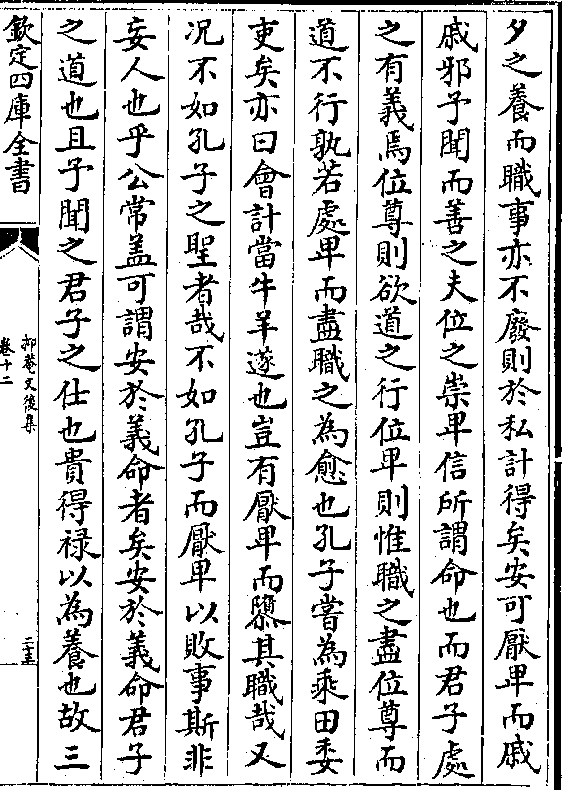 夕之養而職事亦不廢則於私計得矣安可厭卑而戚
戚邪予聞而善之夫位之崇卑信所謂命也而君子處
之有義焉位尊則欲道之行位卑則惟職之盡位尊而
道不行孰若處卑而盡職之為愈也孔子嘗為乘田委
吏矣亦曰會計當牛羊遂也豈有厭卑而隳其職哉又
况不如孔子之聖者哉不如孔子而厭卑以敗事斯非
妄人也乎公常盖可謂安於義命者矣安於義命君子
之道也且予聞之君子之仕也貴得禄以為養也故三
欽定四庫全書
抑菴文後集
卷十二
二十五